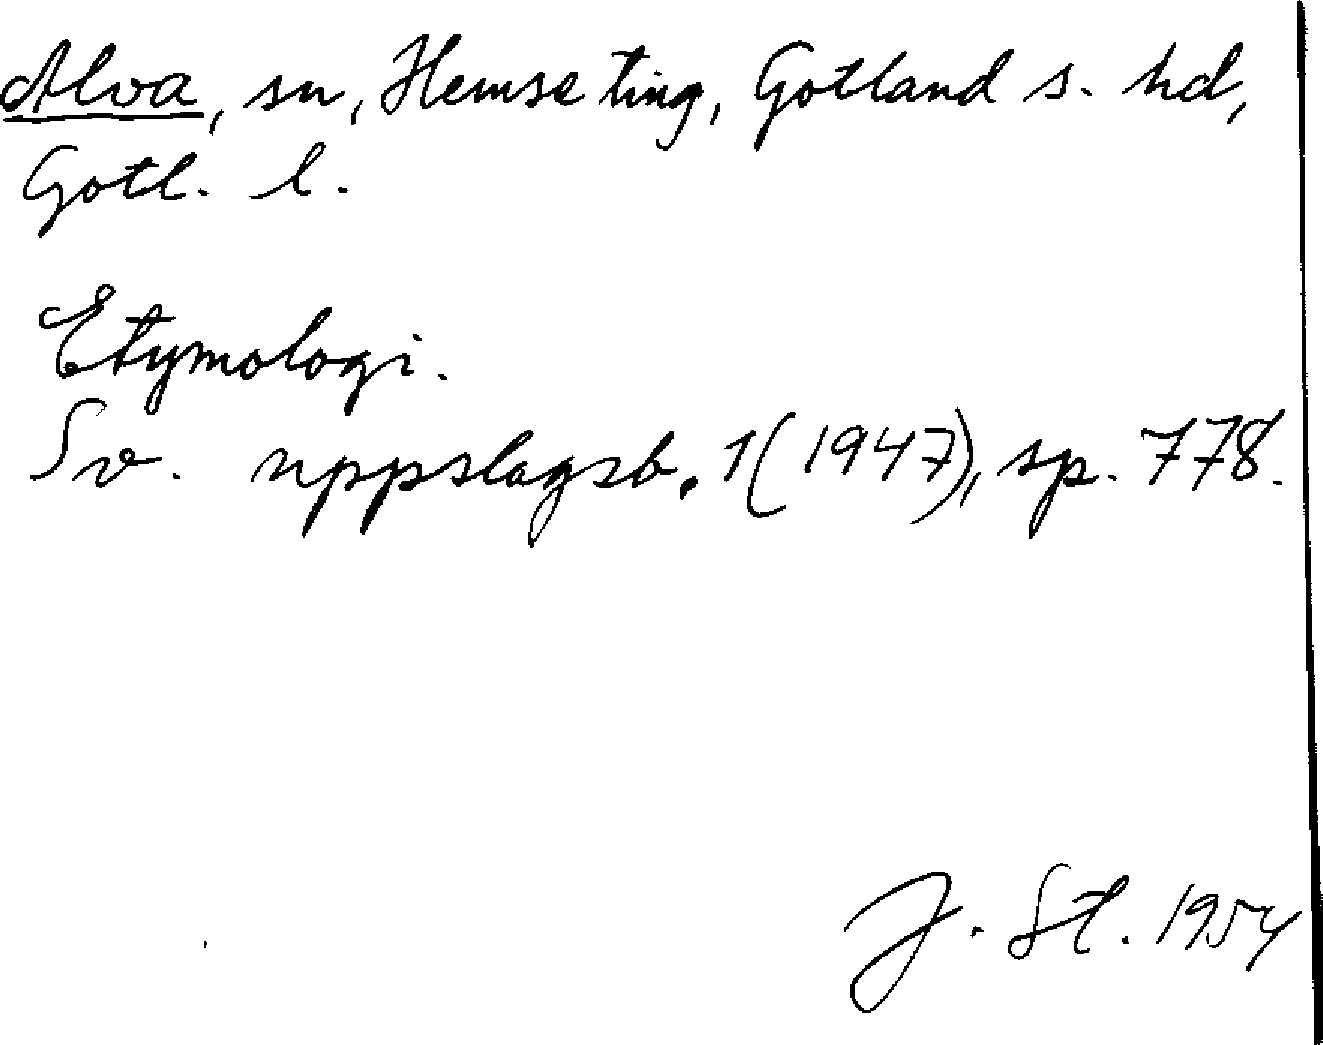 Alva, sn, Hemse ting, Gotland s. hd,
Gotl. l.
Etymologi.
Sv. uppslagsb. 1(1947), sp. 778.
J. St. 1954